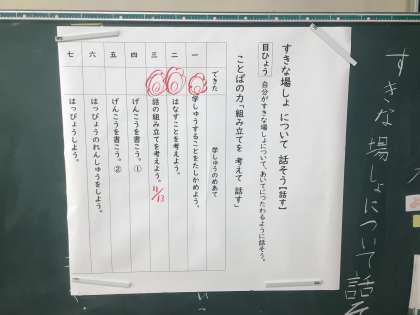 すきな場しょ について 話そう【話す】
目ひょう 自分がすきな場しょについて、あいてにつたわるように話そう。
ことばの力「組み立てを 考えて 話す
できた 学しゅうのめあて
一 学しゅうすることをたしかめよう。
二 はなすことを考えよう。
三 話の組み立てを考えよう。 11/13
四 げんこうを書こう。①
五 げんこうを書こう。②
六 はっぴょうのれんしゅうをしよう。
七 はっぴょうしよう。
すきな場しょについて話そ